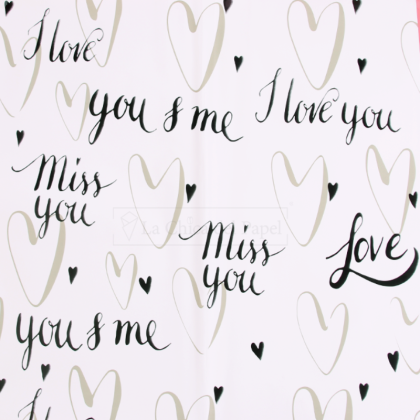 I love
you & me
I love you
Miss
you
Miss
you
Love
you & me
I
I